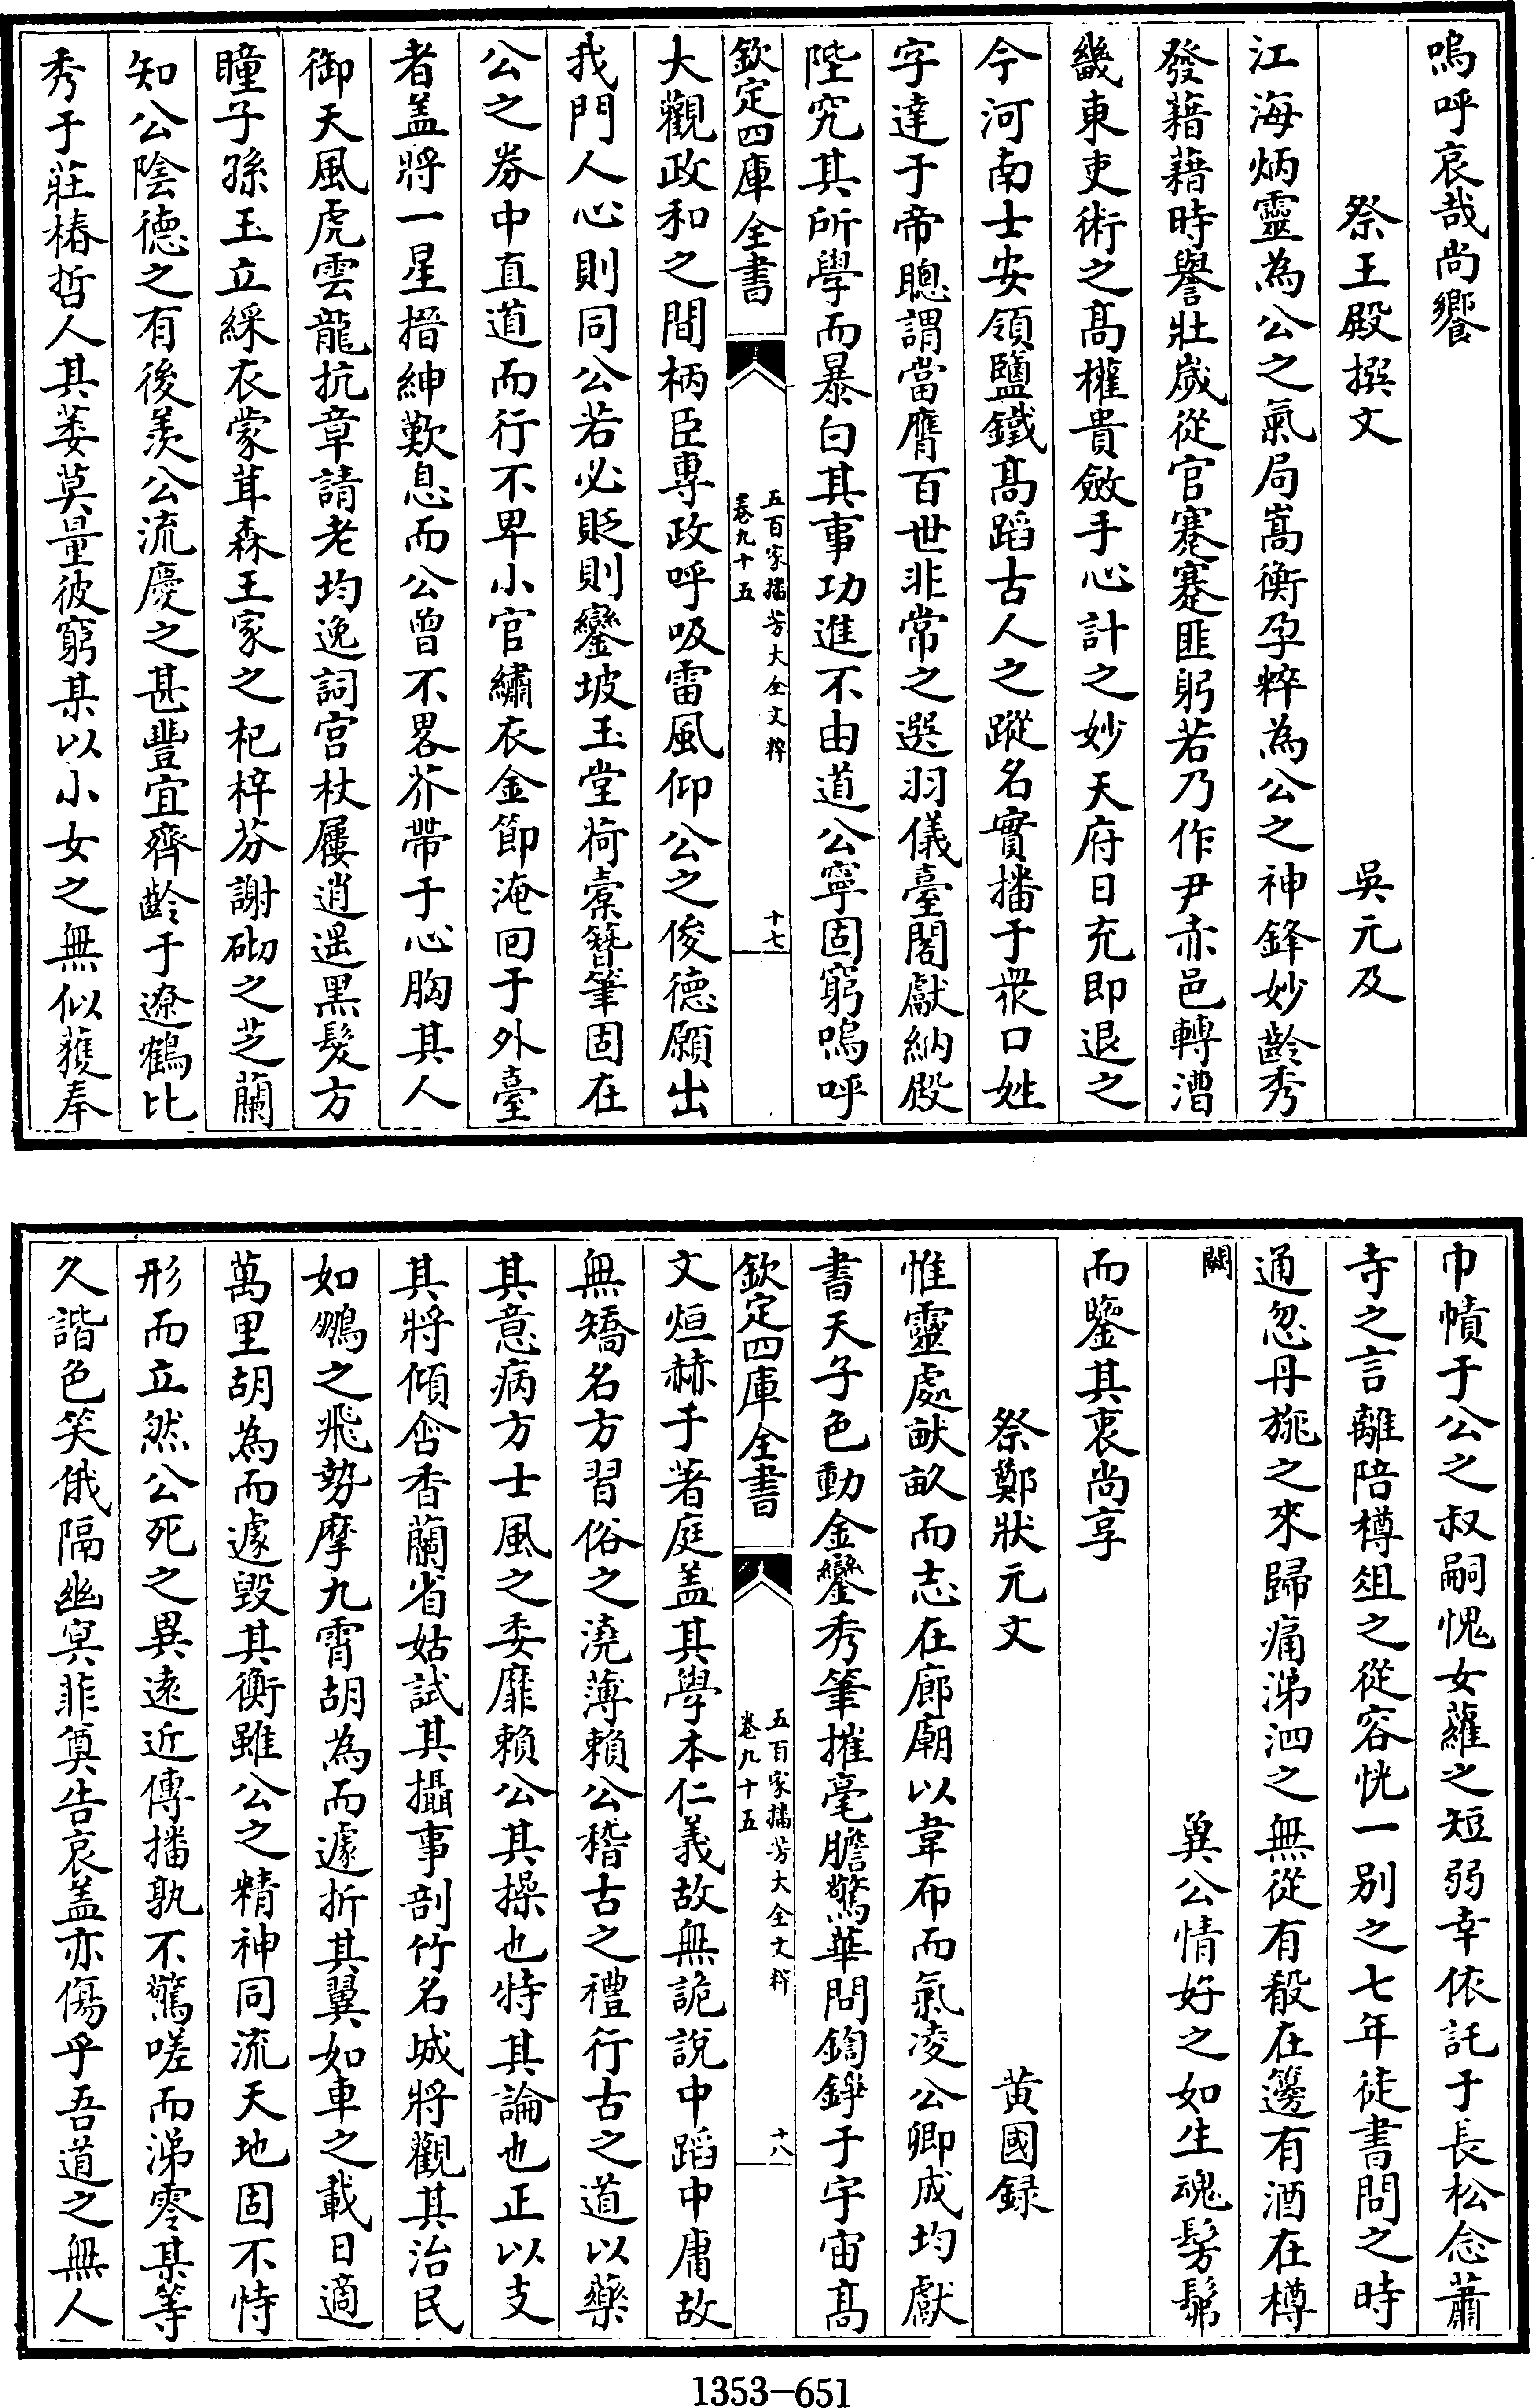 嗚呼哀哉尚饗
祭王殿撰文 吳元及
江海炳靈為公之氣局嵩衡孕粹為公之神鋒妙齡秀
發藉藉時譽壯歲從官蹇蹇匪躬若乃作尹赤邑轉漕
畿東吏術之髙權貴斂手心計之妙天府日充即退之
今河南士安領鹽鐵髙蹈古人之蹤名實播于衆口姓
字達于帝聰謂當膺百世非常之選羽儀臺閣獻納殿
陛究其所學而暴白其事功進不由道公寧固窮嗚呼
欽定四庫全書 五百家播芳大全文粹 卷九十五 十七
大觀政和之間柄臣專政呼吸雷風仰公之俊德願出
我門人心則同公若必貶則鑾坡玉堂荷橐簪筆固在
公之券中直道而行不卑小官繡衣金節淹回于外臺
者盖將一星搢紳歎息而公曾不畧芥帶于心胸其人
御天風虎雲龍抗章請老均逸詞宫杖屨逍遥黑髮方
瞳子孫玉立綵衣蒙茸森王家之杞梓芬謝砌之芝蘭
知公陰德之有後羨公流慶之甚豐宜齊齡于遼鶴比
秀于莊椿哲人其萎莫量彼窮某以小女之無似獲奉
巾幘于公之叔嗣愧女蘿之短弱幸依託于長松念蕭
寺之言離陪樽俎之從容恍一别之七年徒書問之時
通忽丹旐之來歸痛涕泗之無從有殽在籩有酒在樽
闕 冀公情好之如生魂髣髴
而鑒其衷尚享
祭鄭狀元文 黄國録
惟靈處畎畝而志在廊廟以韋布而氣凌公卿成均獻
書天子色動金鑾秀筆摧毫膽驚華問鍧錚于宇宙髙
欽定四庫全書 五百家播芳大全文粹 卷九十五 十八
文烜赫于著庭盖其學本仁義故無詭說中蹈中庸故
無矯名方習俗之澆薄賴公稽古之禮行古之道以藥
其意病方士風之委靡賴公其操也特其論也正以支
其將傾含香蘭省姑試其攝事剖竹名城將觀其治民
如鵬之飛勢摩九霄胡為而遽折其翼如車之載日適
萬里胡為而遽毁其衡雖公之精神同流天地固不恃
形而立然公死之異逺近傳播孰不驚嗟而涕零某等
久諧色笑俄隔幽冥菲奠告哀盖亦傷乎吾道之無人
1353—651